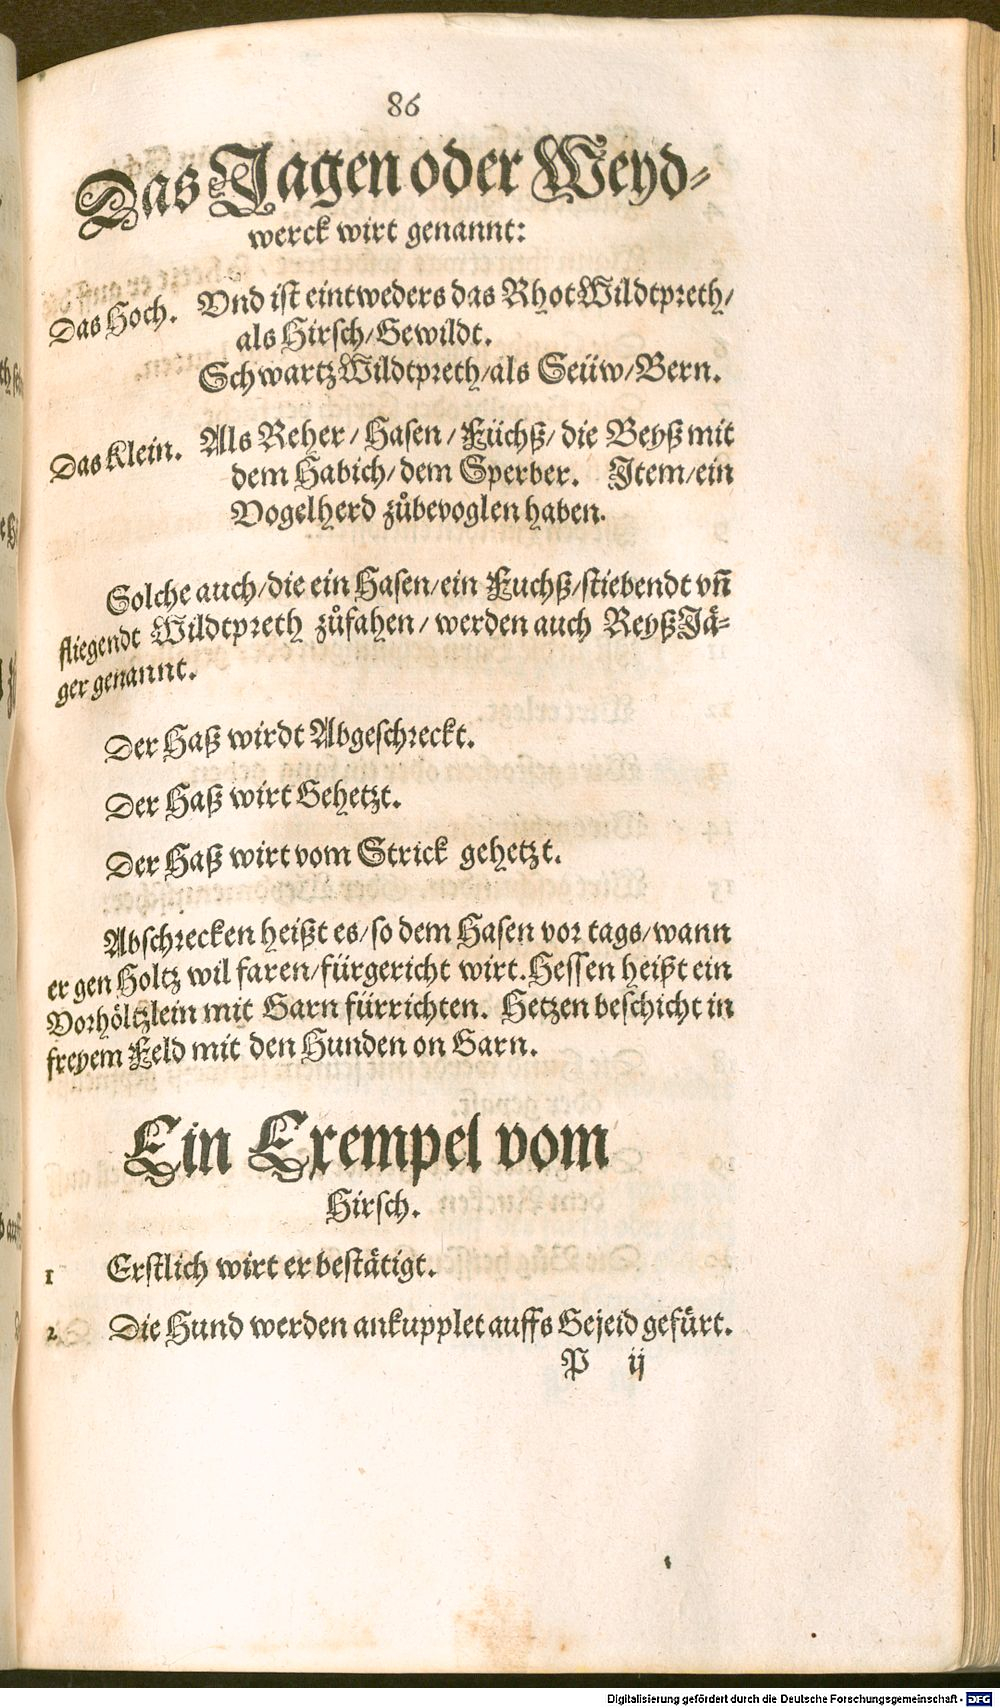 86
Das Jagen oder Weyd⸗
werck wirt genannt:
Das Hoch. Vnd ist eintweders das Rhot Wildtpreth/
als Hirsch/Gewildt.
Schwartz Wildtpreth/als Seüw/Bern.
Das Klein. Als Reher/Hasen/Füchß/die Beyß mit
dem Habich/dem Sperber. Item/ein
Vogelherd zůbevoglen haben.
Solche auch/die ein Hasen/ein Fuchß/stiebendt vñ
fliegendt Wildtpreth zůfahen/werden auch Reyß Jä⸗
ger genannt.
Der Haß wirdt Abgeschreckt.
Der Haß wirt Gehetzt.
Der Haß wirt vom Strick gehetzt.
Abschrecken heißt es/so dem Hasen vor tags/wann
er gen Holtz wil faren/fürgericht wirt. Hessen heißt ein
Vorhöltzlein mit Garn fürrichten. Hetzen beschicht in
freyem Feld mit den Hunden on Garn.
Ein Exempel vom
Hirsch.
1 Erstlich wirt er bestätigt.
2 Die Hund werden ankupplet auffs Gejeid gefürt.
P ij
Digitalisierung gefördert durch die Deutsche Forschungsgemeinschaft - DFG